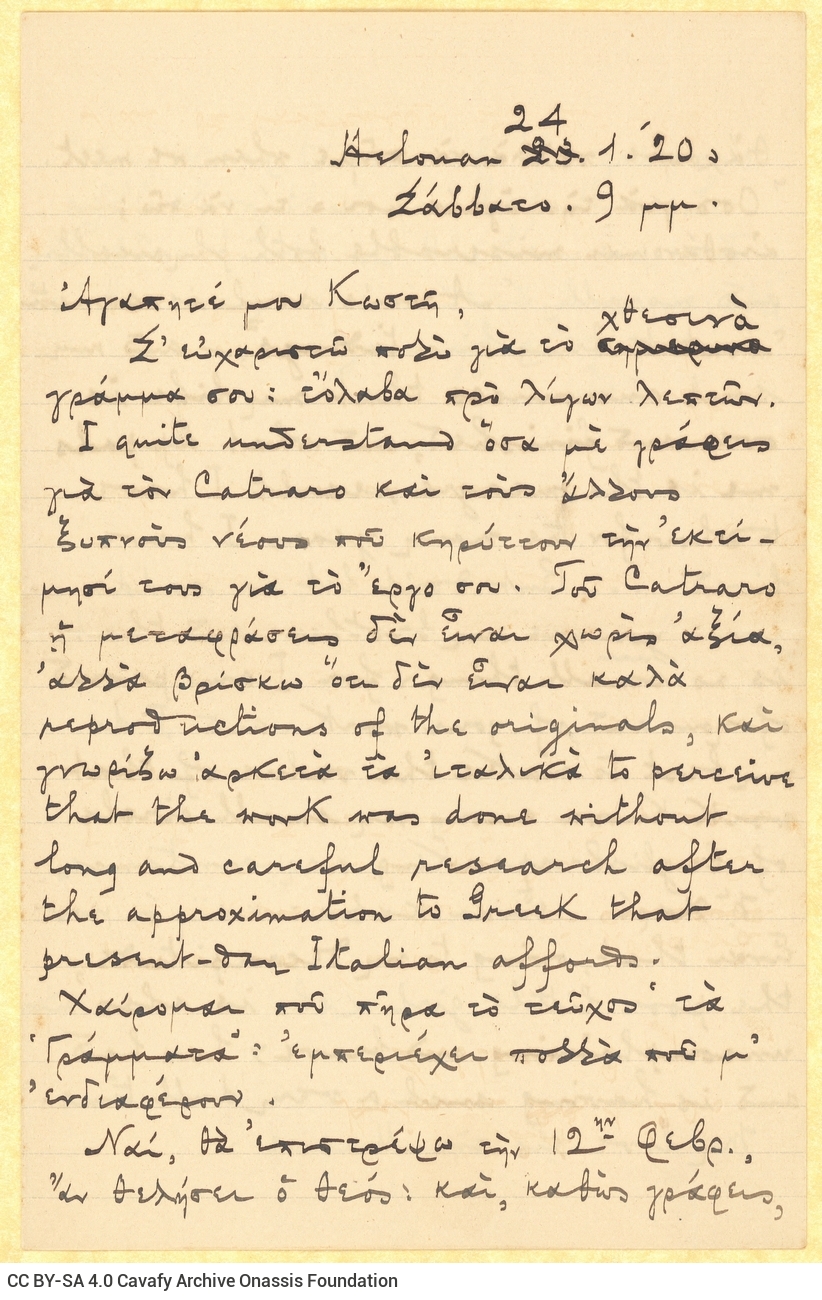 24
Helouan 23. 1. '20.
Σάββατο. 9 μμ.
Ἀγαπητέ μου Κωστῆ,
χθεσινὰ
Σ' εὐχαριστῶ πολὺ γιὰ τὸ σημερινὸ
γράμμα σου: τὄλαβα πρὸ λίγων λεπτῶν.
I quite understand ὅσα μὲ γράφεις
γιὰ τὸν Catraro καὶ τοὺς ἄλλους
ξυπνοὺς νέους ποῦ κηρύττουν τὴν ἐκτί-
μησί τους γιὰ τὸ ἔργο σου. Τοῦ Catraro
ἡ μεταφράσεις δὲν εἶναι χωρὶς ἀξία,
ἀλλὰ βρίσκω ὅτι δὲν εἶναι καλὰ
reproductions of the originals, καὶ
γνωρίζω ἀρκετὰ τὰ ἰταλικὰ to perceive
that the work was done without
long and careful research after
the approximation to Greek that
present-day Italian affords.
Χαίρομαι ποῦ πῆρα τὸ τεῦχος τὰ
"Γράμματα": ἐμπεριέχει πολλὰ ποῦ μ'
ἐνδιαφέρουν.
Ναί, θὰ ἐπιστρέψω τὴν 12ην Φεβρ.,
ἂν θελήσει ὁ θεός: καὶ, καθὼς γράφεις,
CC BY-SA 4.0 Cavafy Archive Onassis Foundation